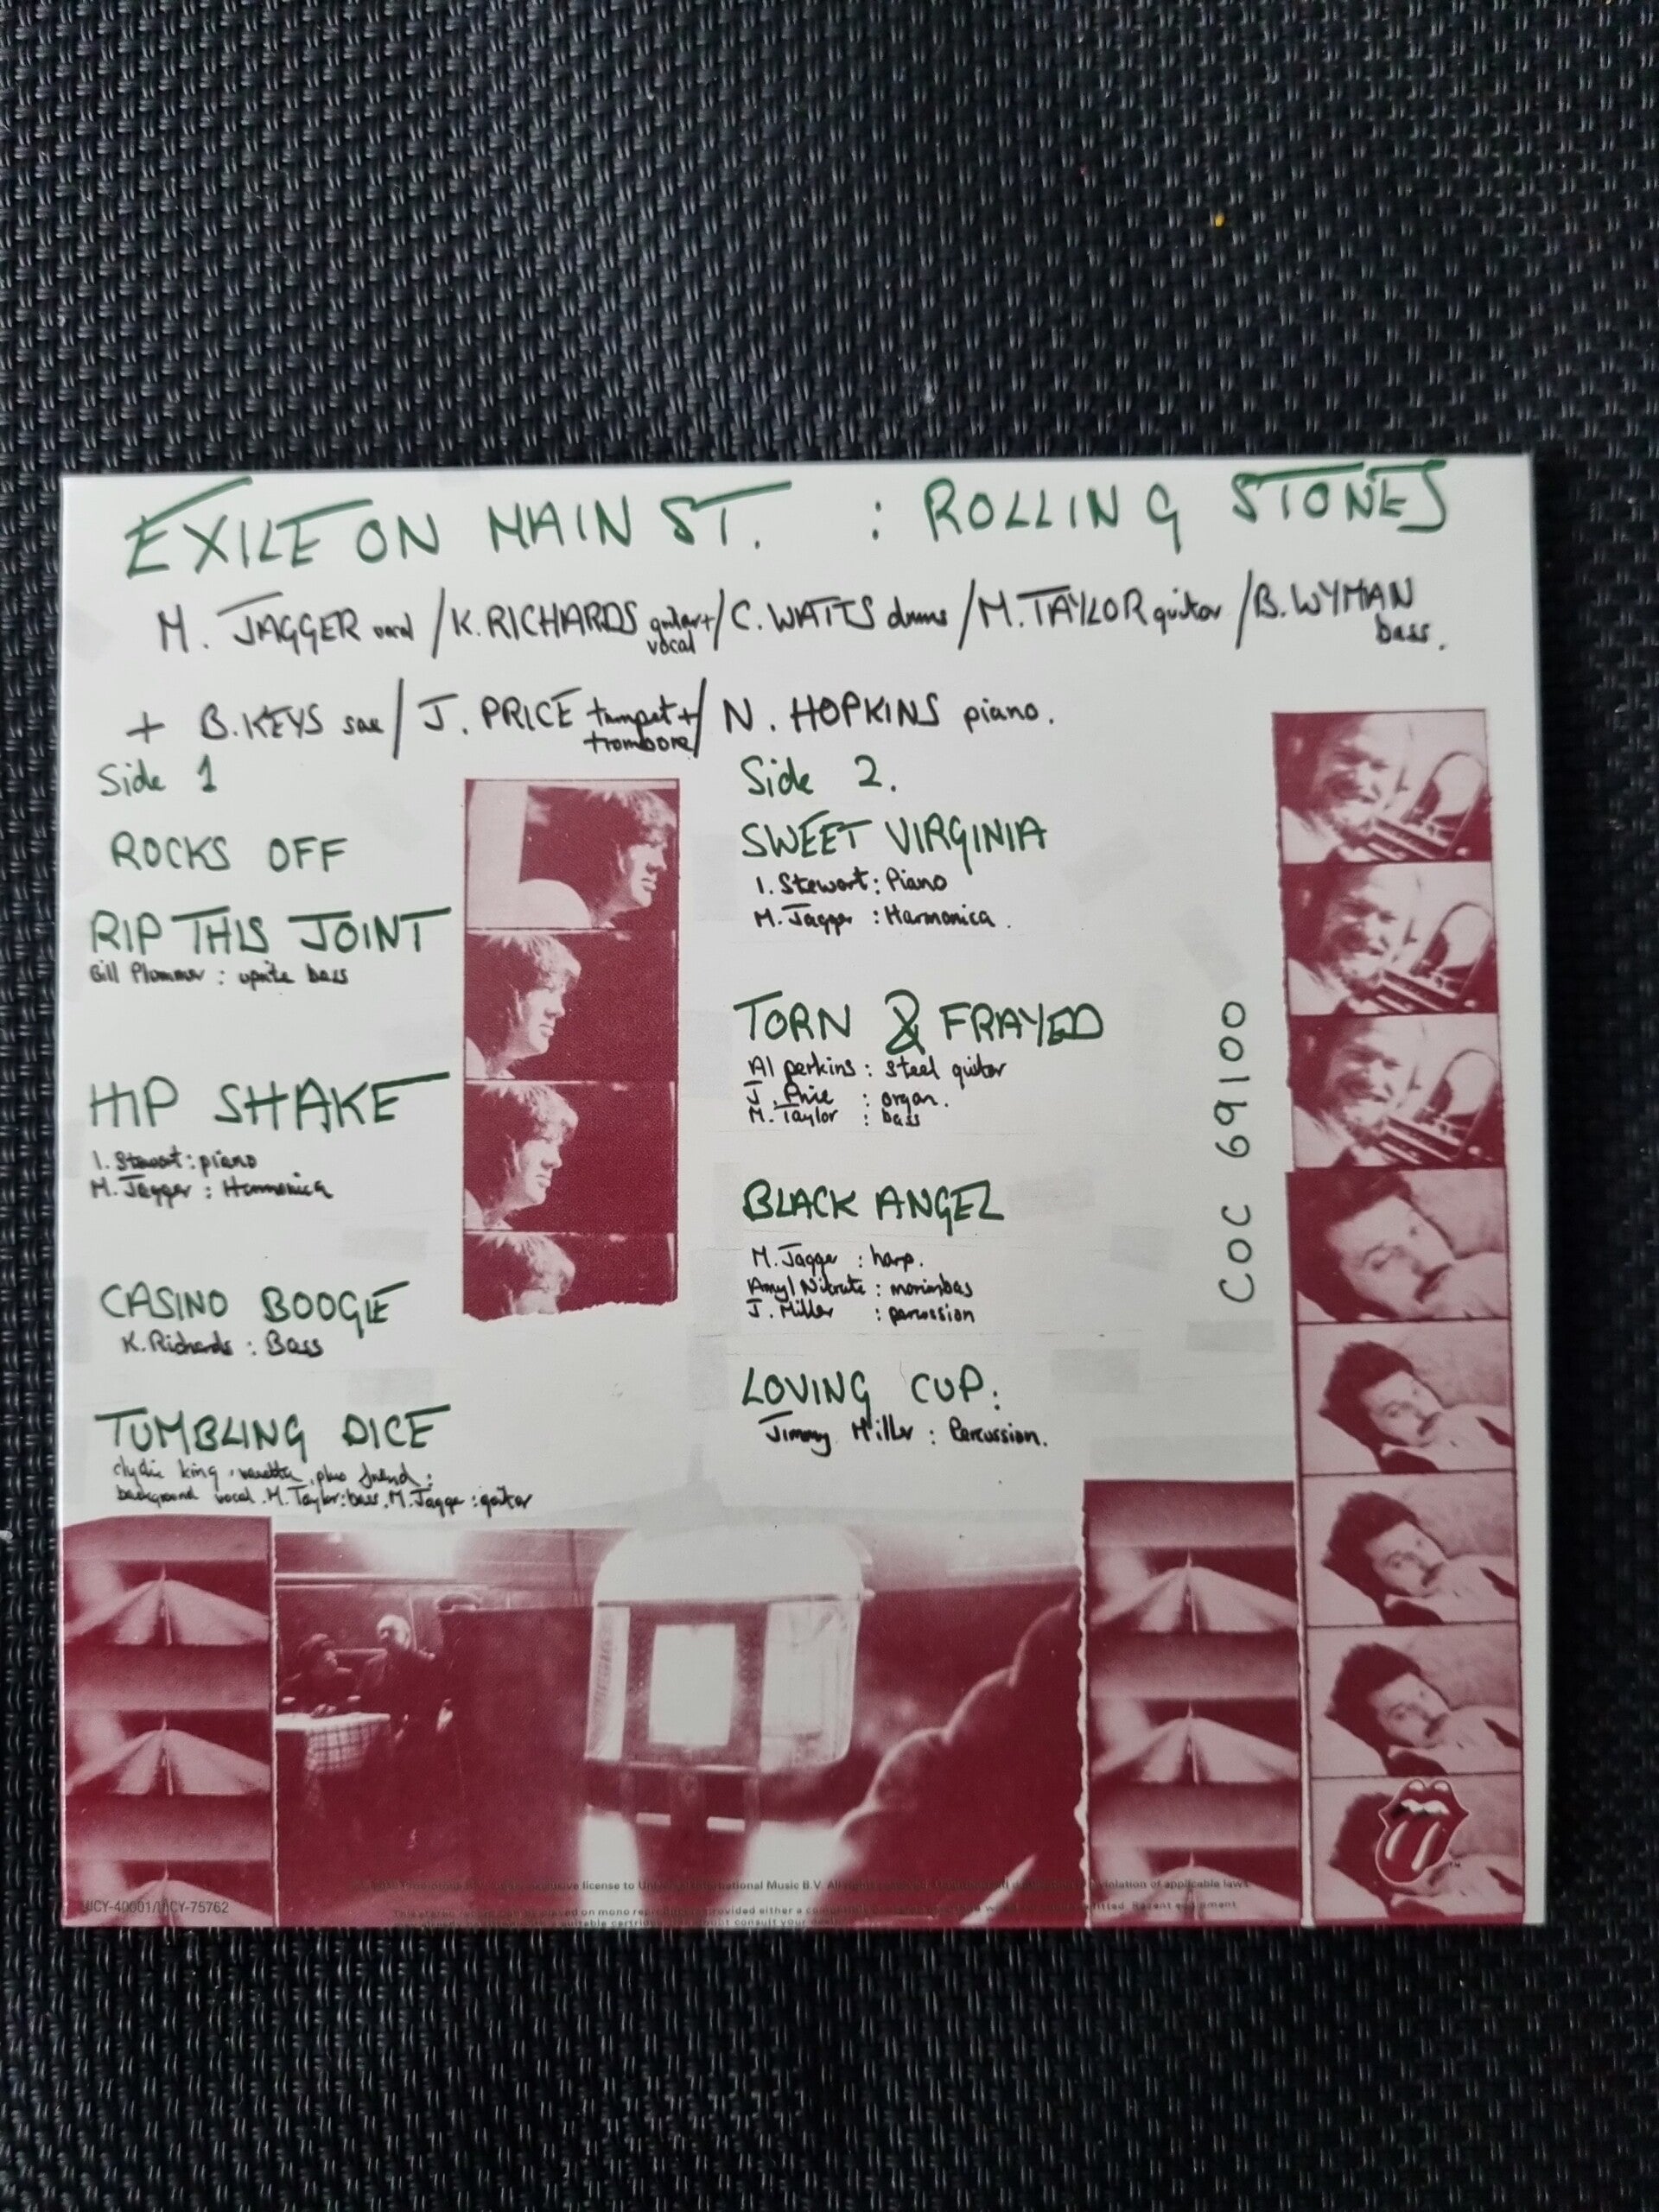 EXILE ON MAIN ST. : ROLLING STONES
M. JAGGER vocal / K. RICHARDS guitar + vocal / C. WATTS drums / M. TAYLOR guitar / B. WYMAN bass.
+ B. KEYS sax / J. PRICE trumpet + trombone / N. HOPKINS piano.
Side 1
ROCKS OFF
RIP THIS JOINT
Bill Plummer : uprite bass
HIP SHAKE
I. Stewart : piano
M. Jagger : Harmonica
CASINO BOOGIE
K. Richards : Bass
TUMBLING DICE
clydie king, vanetta, plus friend :
background vocal. M. Taylor : bass. M. Jagger : guitar
Side 2.
SWEET VIRGINIA
I. Stewart : Piano
M. Jagger : Harmonica.
TORN & FRAYED
Al perkins : steel guitar
J. Price : organ.
M. Taylor : bass
BLACK ANGEL
M. Jagger : harp.
Amyl Nitrate : marimbas
J. Miller : percussion
LOVING CUP :
Jimmy Miller : Percussion.
COC 69100
exclusive license to Universal International Music B.V. All violation of applicable laws
UICY-40001/UICY-75762
This stereo record can be played on mono reproducers provided either a Recent equipment
already suitable cartridge consult your